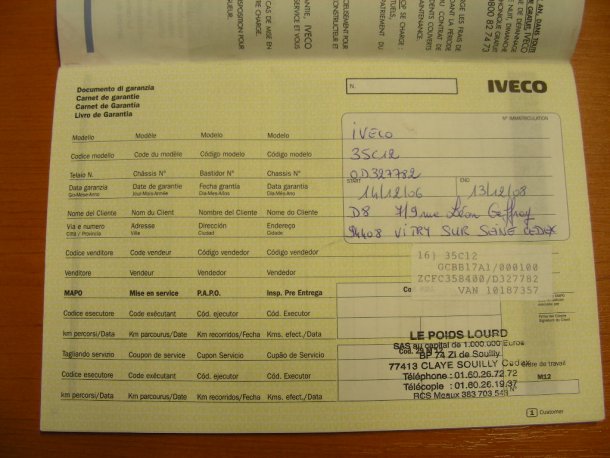 IVECO
N.
Documento di garanzia
Carnet de garantie
Carnet de Garantía
Livro de Garantia
N° IMMATRICULATION
Modello Modèle Modelo Modelo iVECO
Codice modello Code du modèle Código modelo Código modelo 35C12
Telaio N. Châssis N° Bastidor N° Chassis N° OD327782
START END
Data garanzia Date de garantie Fecha grantía Data garantia 14/12/06 13/12/08
Gio-Mese-Anno Jour-Mois-Année Día-Mes-Año Dia-Mês-Año
Nome del Cliente Nom du Client Nombre del Cliente Nome do Cliente D8 7/9 rue Léon Geffroy
Via e numero Adresse Dirección Endereço 94408 VITRY SUR SEINE CEDEX
Città / Provincia Ville Ciudad Cidade
Codice venditore Code vendeur Código vendedor Código vendedor
Venditore Vendeur Vendedor Vendedor
16) 35C12
GCBB17A1/000100
ZCFC358400/D327782
VAN 10187357
MAPO Mise en service P.A.P.O. Insp. Pre Entrega
Codice esecutore Code exécutant Cód. ejecutor Cód. Executor
km percorsi/Data Km parcourus/Date Km recorridos/Fecha Kms. efect./Data
Tagliando servizio Coupon de service Cupon Servicio Cupão de Serviço
Codice esecutore Code exécutant Cód. ejecutor Cód. Executor
km percorsi/Data Km parcourus/Date Km recorridos/Fecha Kms. efect./Data
LE POIDS LOURD
SAS au capital de 1.000.000 Euros
BP 74 Zi de Souilly
77413 CLAYE SOUILLY Cedex
Téléphone : 01.60.26.72.72
Télécopie : 01.60.26.19.37
RCS Meaux 383 703 548
M12
Customer